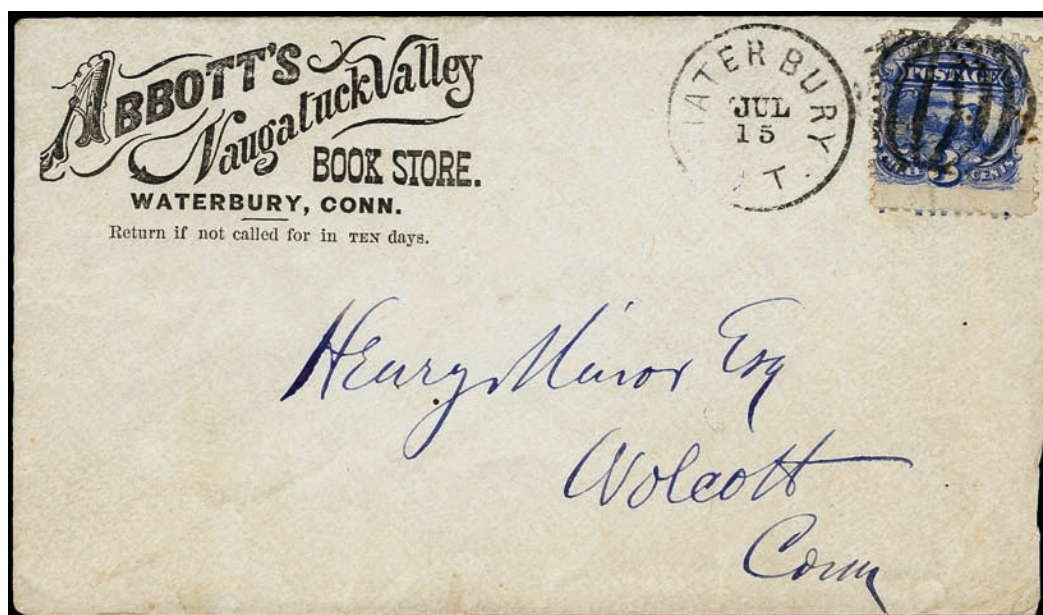 ABBOTT'S
Naugatuck Valley
BOOK STORE.
WATERBURY, CONN.
Return if not called for in TEN days.
WATERBURY
JUL
15
T.
POSTAGE
3
CENTS
Henry Minor Esq
Wolcott
Conn